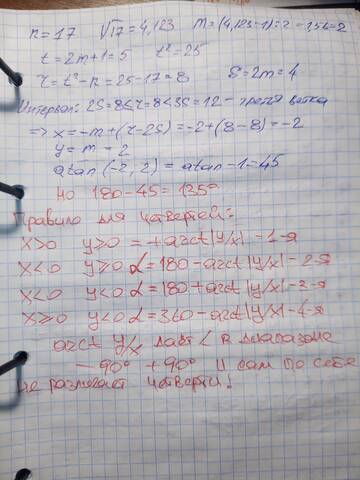 n=17 √17=4,123 m=(4,123-1):2=1,56=2
t=2m+1=5 t²=25
r=t²-n=25-17=8 S=2m=4
Интервал: 2S=8<r=8<3S=12 - третья ветка
=> x=-m+(r-2S)=-2+(8-8)=-2
y=m=2
atan(-2,2)=atan-1=45
Но 180-45=135°
Правило для четвертей:
X>0 y≥0 =+arct|y/x| -1-я
X<0 y≥0 α=180-arct|y/x| -2-я
X<0 y<0 α=180+arct|y/x| -2-я
X≥0 y<0 α=360-arct|y/x| -4-я
arct y/x даёт < в диапазоне
-90° +90° и сам по себе
не различает четверти!